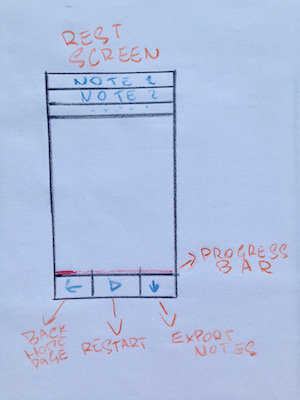 REST
SCREEN
NOTE 1
NOTE 2
.....
PROGRESS
BAR
BACK
HOME
PAGE
RESTART
EXPORT
NOTES